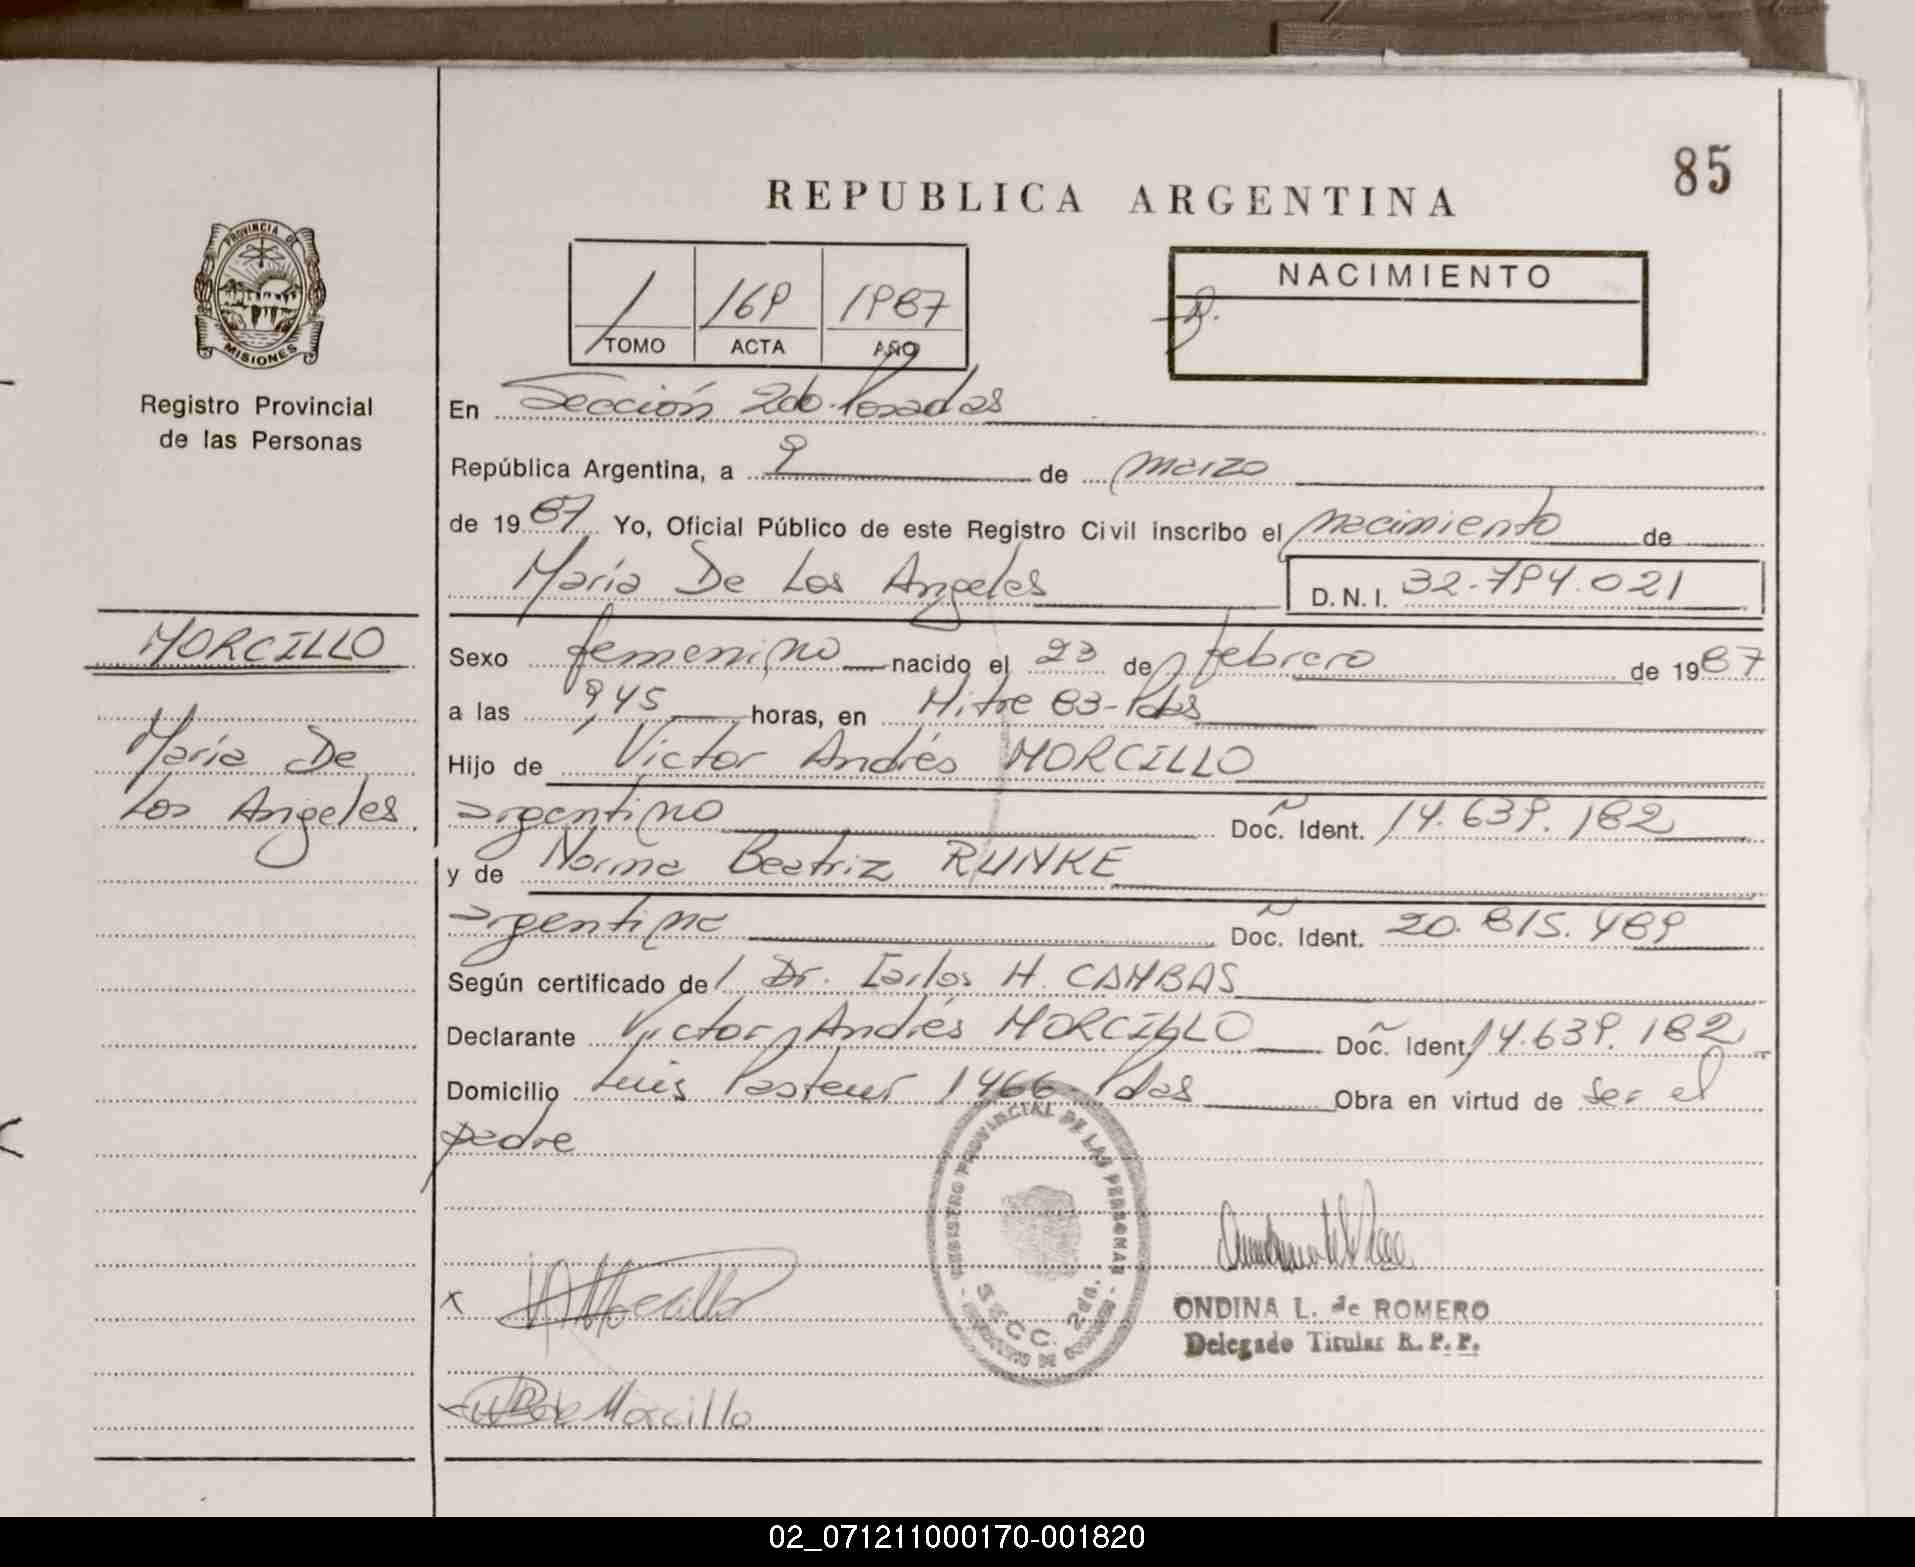 85
REPUBLICA ARGENTINA
PROVINCIA DE
MISIONES
Registro Provincial
de las Personas
1 169 1987
TOMO ACTA AÑO
NACIMIENTO
En Sección 2do. Posadas
República Argentina, a 9 de marzo
de 1987 Yo, Oficial Público de este Registro Civil inscribo el nacimiento de
María De Los Angeles D.N.I. 32.794.021
MORCILLO
María De
Los Angeles.
Sexo femenino nacido el 23 de febrero de 1987
a las 9,45 horas, en Mitre 83-Pdas
Hijo de Victor Andrés MORCILLO
argentino Doc. Ident. 14.639.182
y de Norma Beatriz RUNKE
argentina Doc. Ident. 20.815.489
Según certificado de Dr. Carlos H. CAMBAS
Declarante Victor Andrés MORCILLO Doc. Ident. 14.639.182
Domicilio Luis Pasteur 1466 Pdas Obra en virtud de ser el
padre
REGISTRO PROVINCIAL DE LAS PERSONAS
SECC. 2da.
x Morcillo
ONDINA L. de ROMERO
Delegado Titular R. P. P.
de Morcillo
02_071211000170-001820